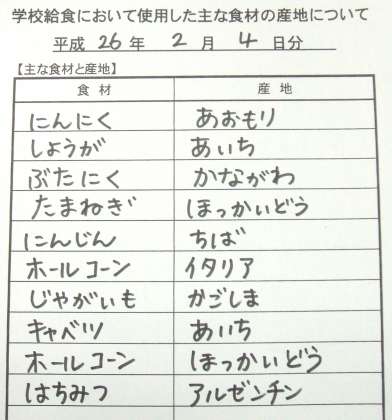 学校給食において使用した主な食材の産地について
平成 26 年 2 月 4 日分
【主な食材と産地】
食材 産地
にんにく あおもり
しょうが あいち
ぶたにく かながわ
たまねぎ ほっかいどう
にんじん ちば
ホールコーン イタリア
じゃがいも かごしま
キャベツ あいち
ホールコーン ほっかいどう
はちみつ アルゼンチン